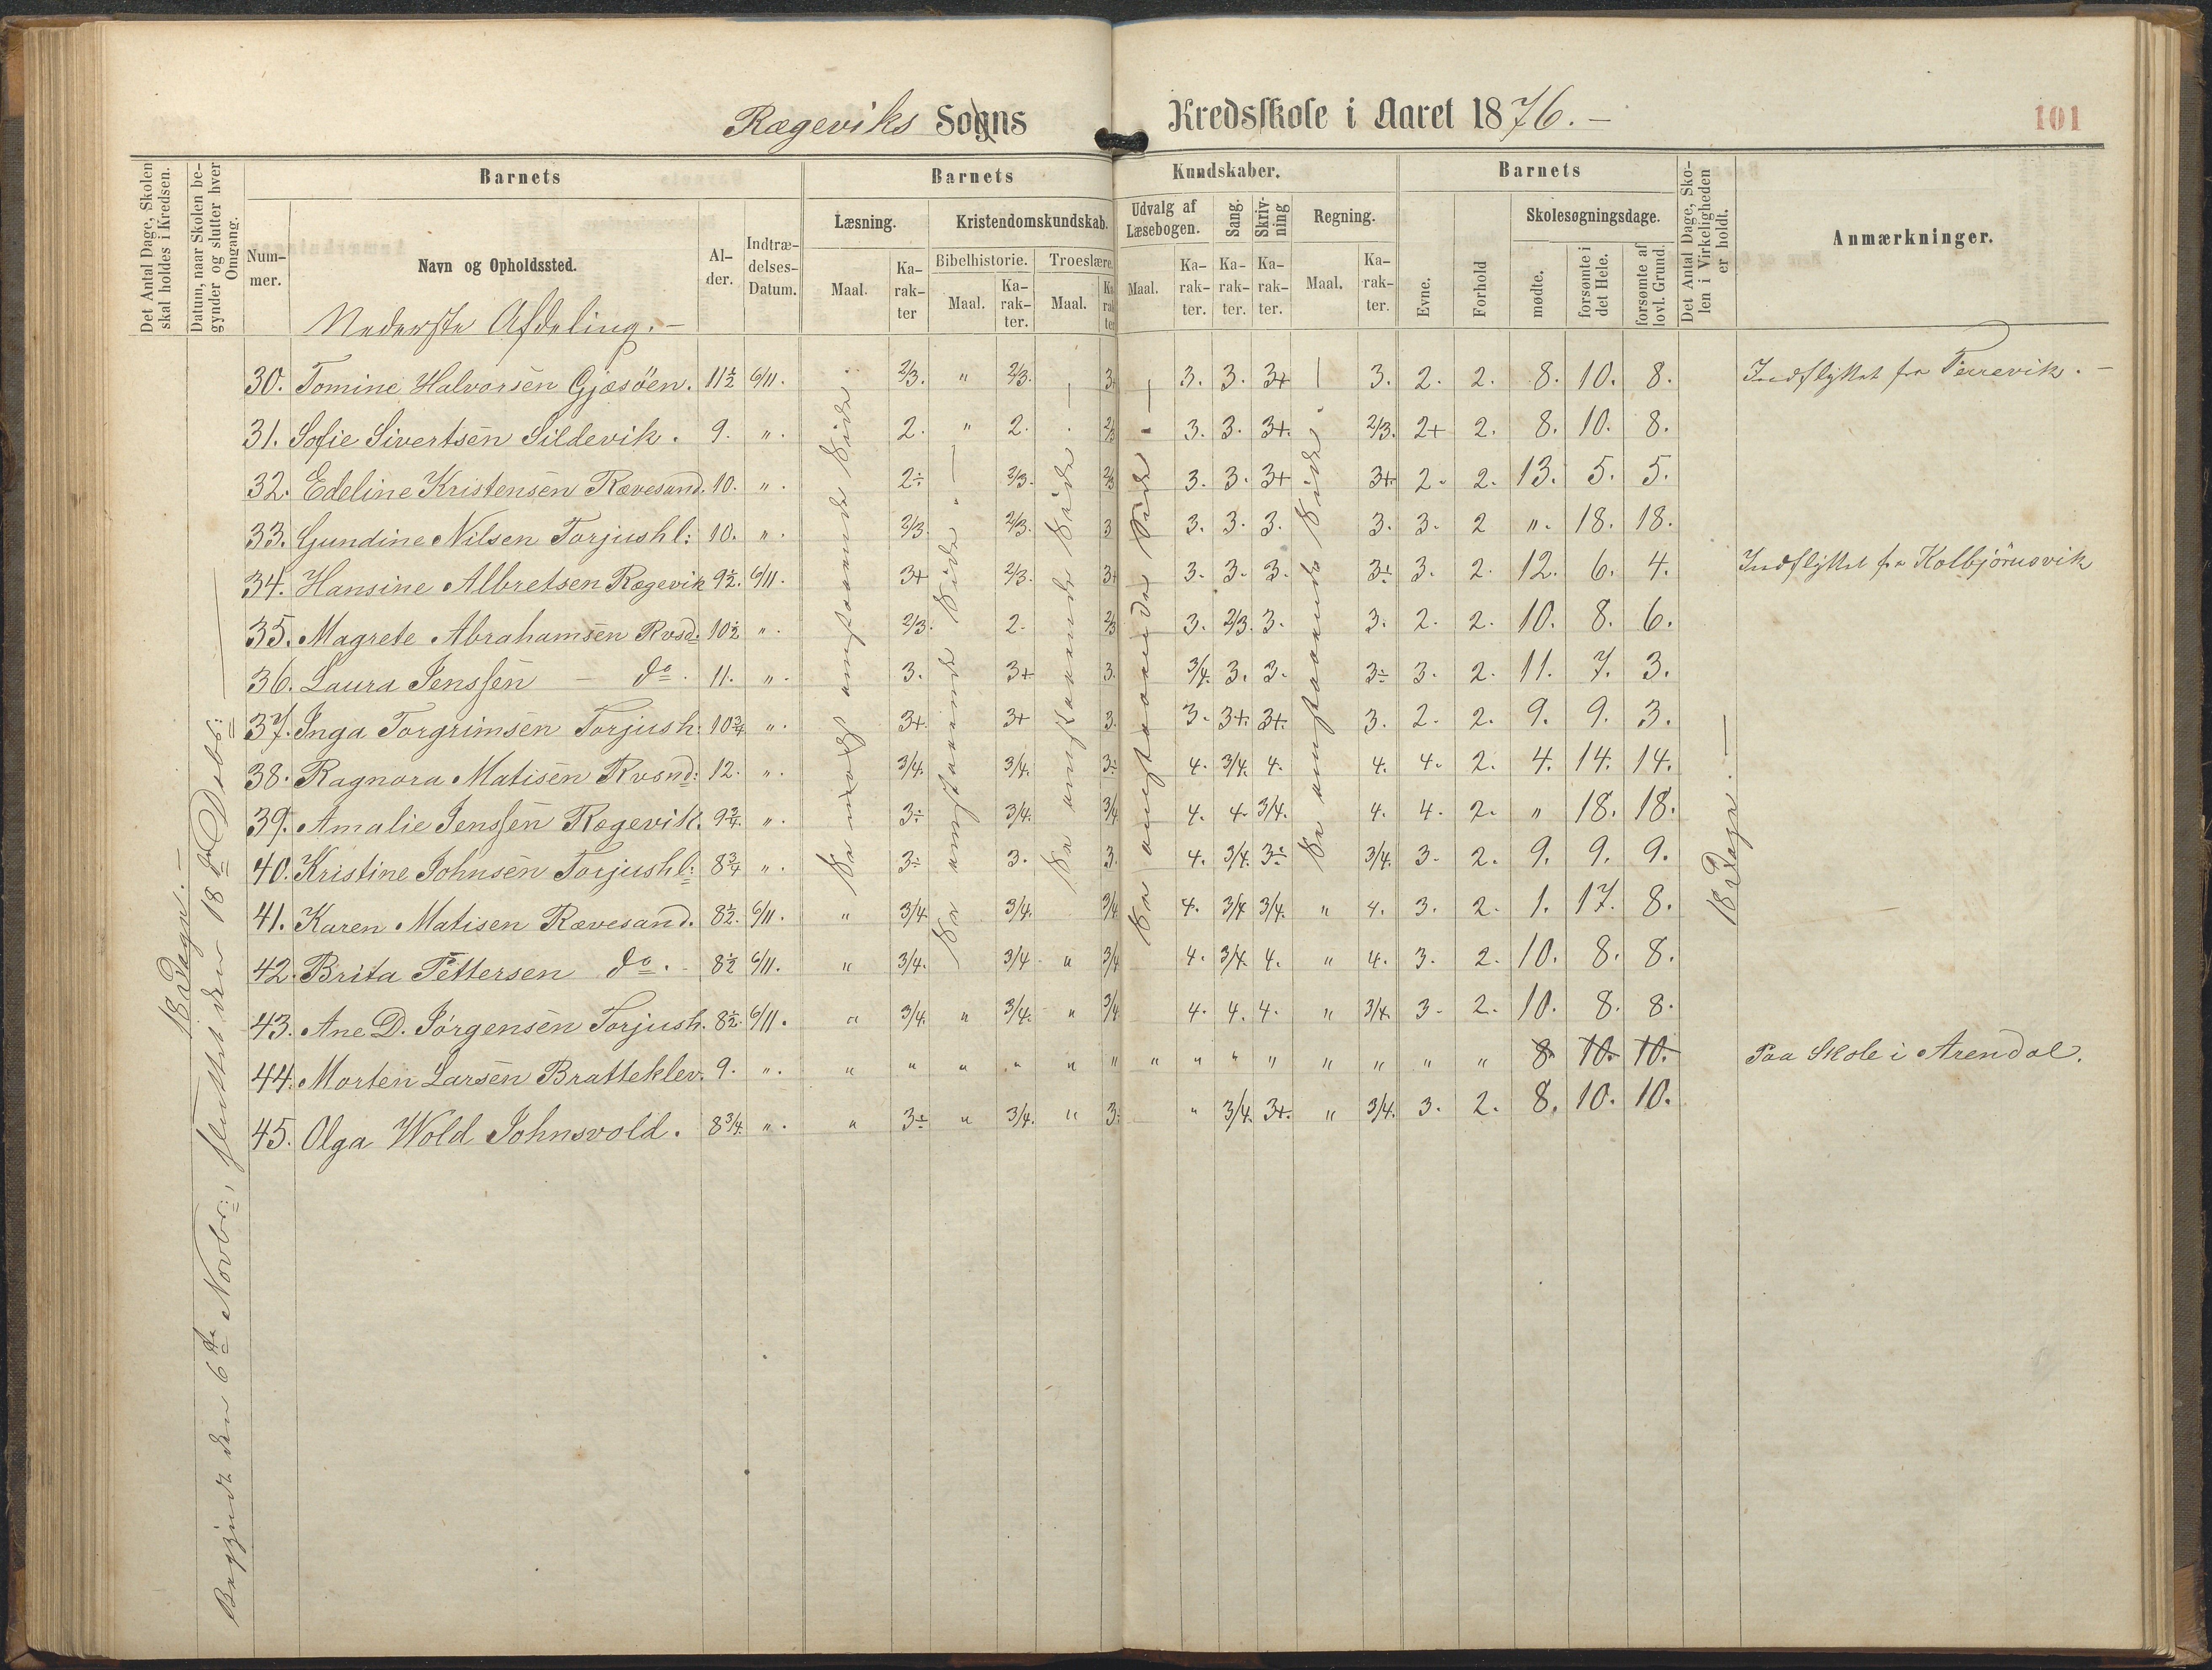 Rægeviks Sogns Kredsskole i Aaret 1876. –
101
Det Antal Dage, Skolen skal holdes i Kredsen.
Datum, naar Skolen begynder og slutter hver Omgang.
Barnets
Barnets
Kundskaber.
Barnets
Det Antal Dage, Skolen i Virkeligheden er holdt.
Anmærkninger.
Nummer.
Navn og Opholdssted.
Alder.
Indtrædelses-Datum.
Læsning.
Kristendomskundskab.
Udvalg af Læsebogen.
Sang.
Skrivning
Regning.
Evne.
Forhold
Skolesøgningsdage.
Bibelhistorie.
Troeslære.
Maal.
Karakter
Maal.
Karakter.
Maal.
Karakter
Maal.
Karakter.
Karakter.
Karakter.
Maal.
Karakter.
mødte.
forsømte i det Hele.
forsømte af lovl. Grund.
Nederste Afdeling. –
30. Tomine Halvorsen Gjæsøen. 11½ 6/11. 2/3. " 2/3. 3+ 3. 3. 3+ 3. 2. 2. 8. 10. 8. Indflyttet fra
31. Sofie Sivertsen Sildevik. 9. ". 2. " 2. 2/3 3. 3. 3+. 2/3. 2+ 2. 8. 10. 8.
32. Edeline Kristensen Rævesand. 10. ". 2÷ 2/3. 2/3 3. 3. 3+ 3+. 2. 2. 13. 5. 5.
33. Gundine Nilsen Torjushl: 10. ". 2/3. 2/3. 3 3. 3. 3. 3. 3. 2 ". 18. 18.
34. Hansine Albretsen Rægevik 9½. 6/11. 3+ 2/3. 3+ 3. 3. 3. 3÷ 3. 2. 12. 6. 4. Indflyttet fra Kolbjörnsvik
35. Magrete Abrahamsen Rvsd: 10½ ". 2/3. 2. 2/3 3. 2/3. 3. 3. 2. 2. 10. 8. 6.
36. Laura Jenssen – do. 11. ". 3. 3+ 3. 3/4. 3. 3. 3÷ 3. 2. 11. 7. 3.
37. Inga Torgrimsen Torjush: 10¾ ". 3+. 3+ 3. 3. 3+. 3+. 3. 2. 2. 9. 9. 3.
38. Ragnora Matisen Rvsnd: 12. ". 3/4. 3/4. 3÷ 4. 3/4. 4. 4. 4. 2. 4. 14. 14.
39. Amalie Jenssen Rægevik. 9¾. ". 3÷ 3/4. 3/4 4. 4. 3/4. 4. 4. 2. " 18. 18.
40. Kristine Johnsen Torjushl: 8¾ ". 3÷ 3. 3. 4. 3/4. 3÷ 3/4. 3. 2. 9. 9. 9.
41. Karen Matisen Rævesand. 8½. 6/11. " 3/4 3/4. 3/4 4. 3/4 3/4. " 4. 3. 2. 1. 17. 8.
42. Brita Pettersen do. 8½ 6/11. " 3/4. 3/4 " 3/4 4. 3/4. 4. " 4. 3. 2. 10. 8. 8.
43. Ane D. Jörgensen Torjush. 8½. 6/11. " 3/4. " 3/4. " 3/4 4. 4. 4. " 3/4. 3. 2. 10. 8. 8.
44. Morten Larsen Bratteklev. 9. ". " " " " " " " " " " " " " " 8. 10. 10. Paa Skole i Arendal.
45. Olga Wold Johnsvold. 8¾. ". " 3÷ " 3/4. " 3÷ " 3/4. 3+. " 3/4. 3. 2. 8. 10. 10.
18 Dage. –
Begyndt den 6te Novbr:, sluttet den 18de Decbr:
Se
omstaaende Side.
Se omstaaende Side. –
Se omstaaende Side. –
Se omstaaende Side. –
Se omstaaende Side.
18 Dage. –